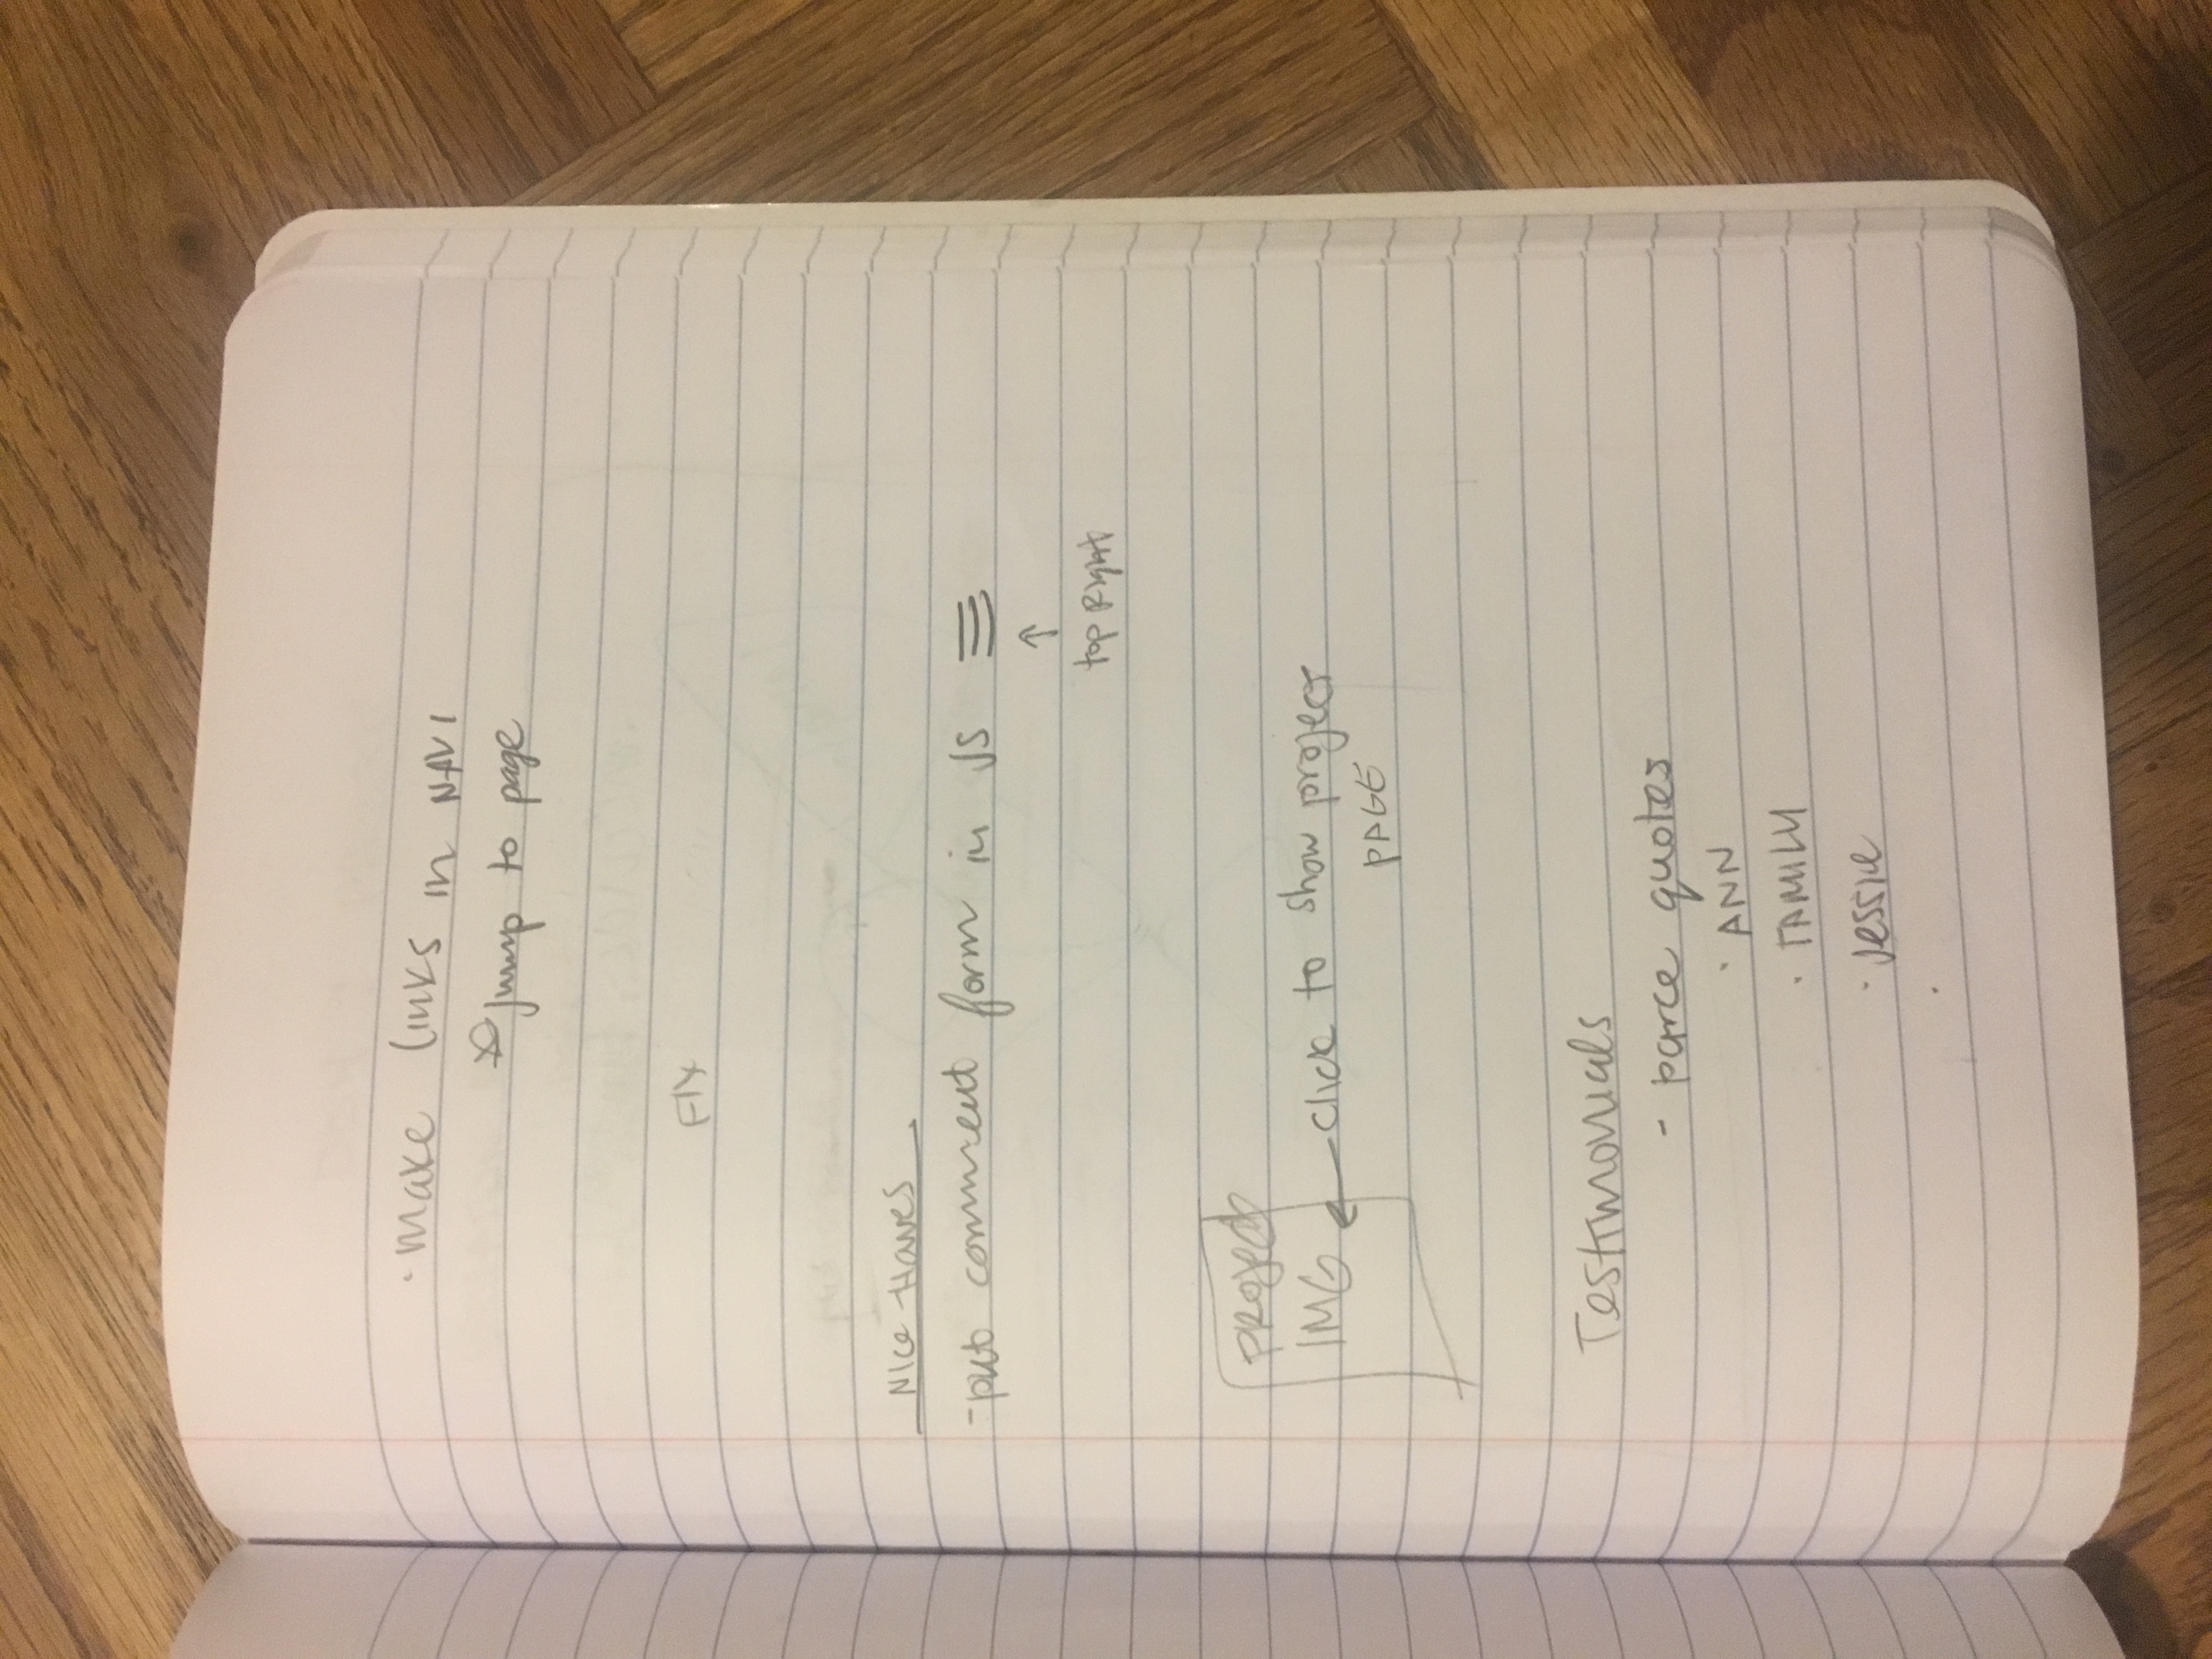 · make links in NAVI
jump to page
FIX
Nice-Haves
- put comment form in JS
↑
top Right
PROJECT
IMG ← click to show project
PAGE
Testimonials
- parce quotes
· ANN
·
· Jessie
·